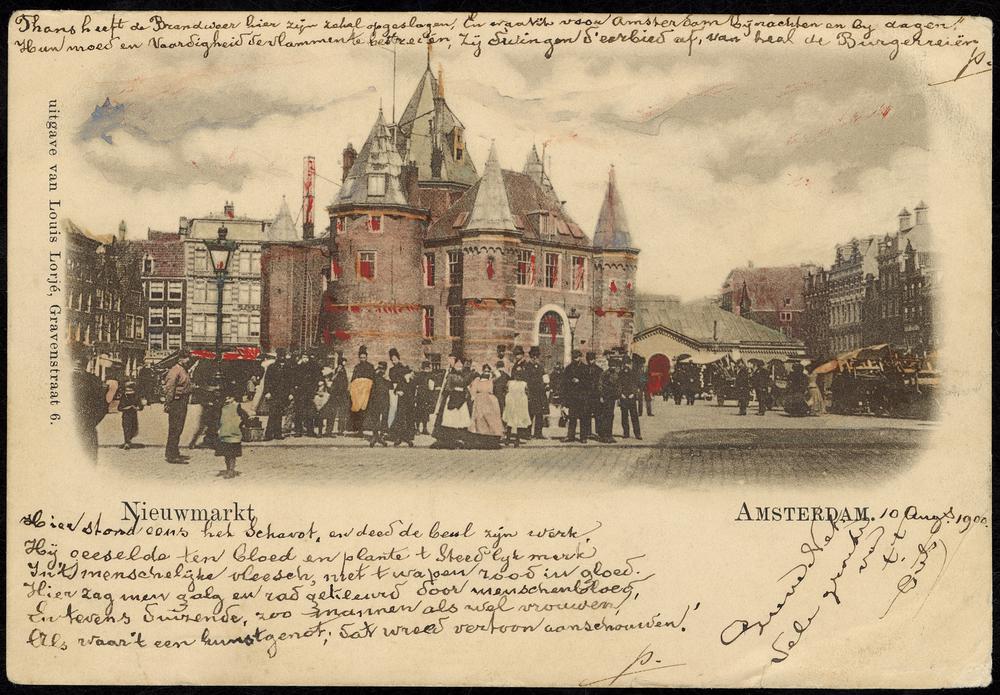 Thans heeft de Brandweer hier zijn zetel opgeslagen, En waakt voor Amsterdam bij nachten en bij dagen"
Hun moed en Vaardigheid de vlammen te bestreien, Zij dwingen d'eerbied af, van heel de Burgerreien
p.
uitgave van Louis Lorjé, Gravenstraat 6.
Nieuwmarkt
AMSTERDAM. 10 Aug. 1900.
Hier stond eens het Schavot, en deed de beul zijn werk,
Hij geeselde ten bloed en plante 't Steedlijk merk
In 't menschelijke vleesch, met 't wapen rood in gloed.
Hier zag men galg en rad geteisterd door menschenbloed,
En tevens duizende, zoo mannen als wel vrouwen,
Als waar't een kunstgenot, dat wreed vertoon aanschouwen!
p.
Vele groeten
van